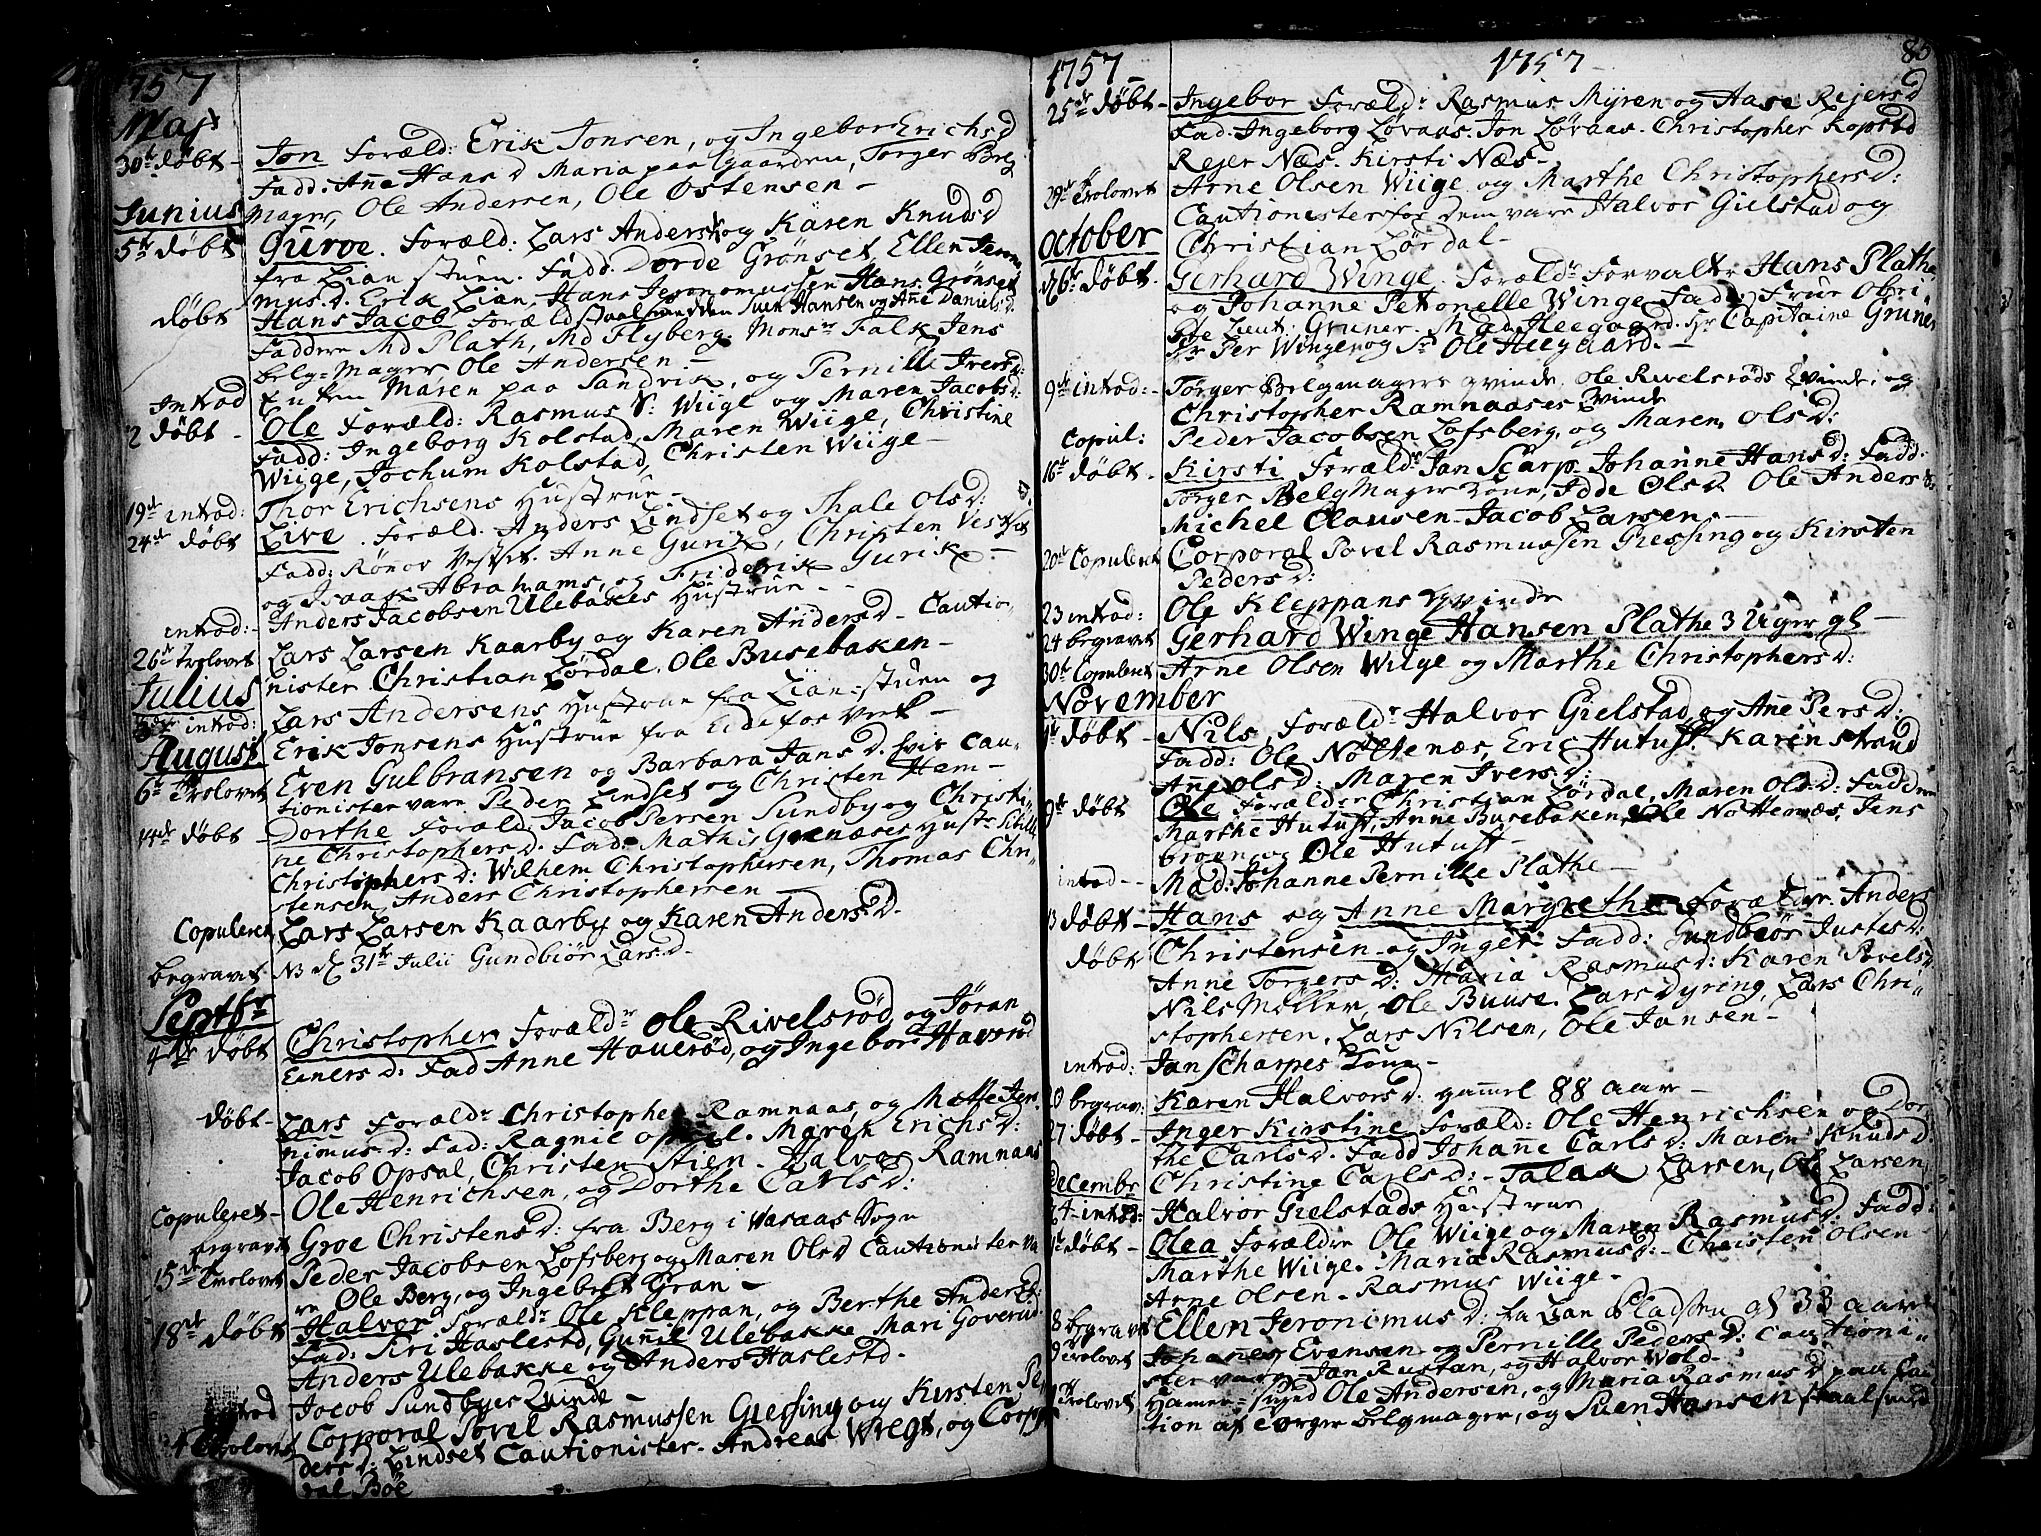 1757
Maj
30te døbt - Jon Foræld: Erik Jonsen, og Ingebor Erichs D
Fadd: Anne Hans D Maria paa Gaarden, Torger Belg
Mager, Ole Andersen, Ole Østensen -
Junius
5te døbt Guroe. Foræld: Lars Anders og Karen Knuds D
fra Lian stuen. Fadd. Dorde Grønset, Ellen Jeroni
mus D. Erik Lian, Hans Jeronomussen Hans Grønset
døbt Hans Jacob Foræld Staalsmedden Suen Hansen og Anne Daniels D.
Faddere Md Plath, Md Flyberg. Monsr Falk Jens
belg-Mager Ole Andersen -
Introd Enken Maren paa Sandvik, og Pernille Ivers D:
2 døbt - Ole Foræld: Rasmus Wiige og Maren Jacobs D:
Fadd: Ingeborg Kolstad, Maren Wiige, Christine
Wiige, Jochum Kolstad, Christen Wiige -
19de introd: Thor Erichsens Hustrue -
24de døbt Live. Foræld. Anders Lindset og Thale Ols D:
Fadd: Rønov Vestset. Anne Gurik, Christen Vestset
og Isaak Abrahams, og Friderik Gurik -
introd:- Anders Jacobsen Ulebakes Hustrue -
26de Trolovet Lars Larsen Kaarby og Karen Anders D - Cautio,
nister Christian Lørdal. Ole Busebaken -
Julius
3die introd: Lars Andersens Hustrue fra Lian-stuen og
Erik Jonsens Hustrue fra Eidsfos Verk -
August
6te Trolovet Even Gulbransen og Barbara Jans D. hvis Cau-
tionister vare Peder Lindset og Christen Hem -
14de døbt - Dorthe Foræld: Jacob Persen Sundby og Christi-
ne Christophers D. Fad: Mathis Grenæses Hustr
Christophers D: Wilhem Christophersen, Thomas Chri-
stensen, Anders Christophersen -
Copuleret Lars Larsen Kaarby og Karen Anders D.
begravet NB d 31te Julii Gundbiør Lars D.
Septbr
4de døbt Christopher Foræld: Ole Rivelsrød og Jøran
Einers D: Fad Anne Hauerød, og Ingebor Hauerød
døbt - Lars Foræld: Christopher Ramnaas, og Mette Jero
nimus D: Fad: Ragnil Opsal. Maren Erichs D:
Jacob Opsal, Christen Stien - Halvor Ramnaas
Copuleret - Ole Henrichsen, og Dorthe Carls D:
begravet Groe Christens D: fra Berg i Waraas Sogn
15de Trolovet Peder Jacobsen Lofsberg og Maren Ols D Cautionister va
re Ole Berg, og Ingebret Gran -
18de døbt Halvor. Foræld: Ole Kleppan, og Berthe Anders D:
Fad: Kri Haslestd, Gunnil Ulebakke, Mari Goverud
Anders Ulebakke og Anders Haslestd.
introd Jacob Sundbyes Qvinde -
24 Trolovet Corporal Povel Rasmussen Giessing og Kirsten Pe,
ders D: Lindset Cautionister. Andreas Wregt, og Corpo
ral Bøe
1757
1757
85
25de døbt - Ingebor Foræld: Rasmus Myren og Aase Rejers D
Fad: Ingeborg Løvaas. Jon Løvaas. Christopher Kopstd
Rejer Næs. Kirsti Næs -
29de Trolovet Arne Olsen Wiige og Marthe Christophers D:
Cautionister for dem vare Halvor Gielstad og
Christian Lørdal -
October
døbt. Gerhard Winge. Foræld: Forvalter Hans Plathe
og Johanne Petronelle Winge Fadd: Frue Obri-
ste Lieut: Gruner. Mad Heegaard. hr Capitaine Gruner
Hr Per Winge og Sr Ole Heegaard. -
9de introd: - Torger Belgmagers qvinde, Ole Rivelsrøds Qvinde, og
Christopher Ramnaases Qvinde
Copul: Peder Jacobsen Lofsberg, og Maren Ols D:
16de døbt - Kirsti Foræld: Jan Scarp Johanne Hans D: Fadd.
Torger BelgMager Kone, Idde Ols D Ole Anders
Michel Clausen - Jacob Larsen -
20de Copuleret Corporal Povel Rasmussen Giessing og Kirsten
Peders D:
23 introd: Ole Kleppans Qvinde
24 begravet Gerhard Winge Hansen Plathe 3 Uger gl -
30te Copuleret Arne Olsen Wiige og Marthe Christophers D:
November
døbt - Nils, Foræld: Halvor Gielstad, og Anne Pers D:
Fadd: Ole Noltenæs, Eric Hutuft Karin strand
Anne Ols D: Maren Ivers D:
9de døbt Ole Foræld: Christian Lørdal, Maren Ols D: Faddere
Marthe Hutuft, Anne Busebaken, Ole Nottenæs, Jens
broen og Ole Hutuft -
introd - Mad: Johanne Pernille Plathe -
13 døbt - Hans og Anne Margrethe Foræld: Anders
døbt Christensen og Inger Fadd: Gundbiør Justes D:
Anne Torgers D: Maria Rasmus D: Karen Povels D
Nils Møller, Ole Buuse. Lars Dyring, Lars Chri-
stophersen, Lars Nilsen, Ole Jansen -
introd: Jan Scharpes Kone -
begrav: Karen Halvors D. gammel 88 aar -
27 døbt - Inger Kirstine Foræld: Ole Henrichsen og Dor
the Carls D. Fadd Johanne Carls D: Maren Knuds D:
Christine Carls D: - Talak Larsen, Ole Larsen
Decembr
4 introd: Halvor Gielstads Hustrue
døbt - Olea Foræld: Ole Wiige og Maren Rasmus D: Fadd:
Marthe Wiige. Maria Rasmus D: - Christen Olsen -
Arne Olsen - Rasmus Wiige -
8 begravet Ellen Jeronimus D: fra Lian Pladssen gl 33 aar
Trolovet Johanes Evensen og Pernille Peders D: Cautioni-
ster vare Jan Rustan, og Halvor Wold -
Trolovet Hamer-smed Ole Andersen, og Maria Rasmus D paa Cau
tion af Torger Belgmager, og Suen Hansen Staalsmed